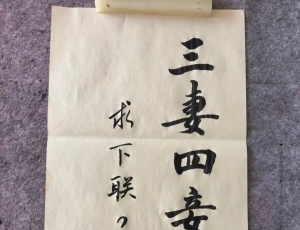 三妻四妾
求下联